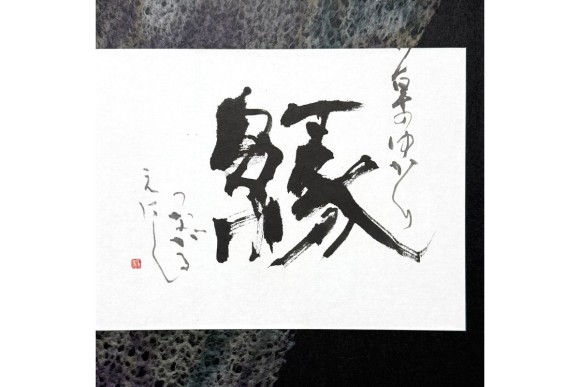 草のゆかり
縁
つながる
えにし